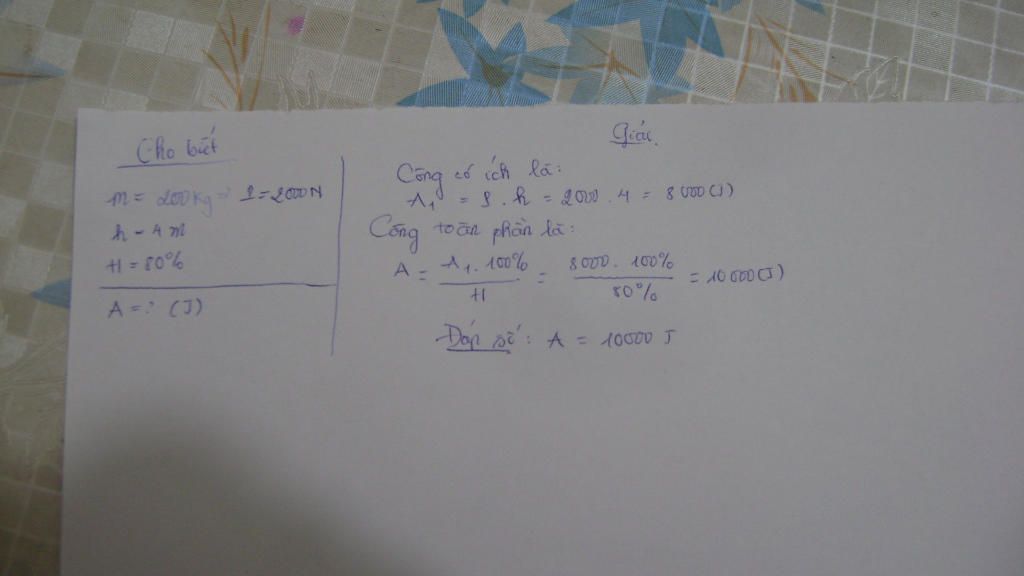 Cho biết
m = 200kg => P = 2000N
h = 4 m
H = 80%
A = ? (J)
Giải.
Công có ích là:
A1 = P . h = 2000 . 4 = 8000(J)
Công toàn phần là:
A = A1 . 100% / H = 8000 . 100% / 80% = 10000(J)
Đáp số: A = 10000 J